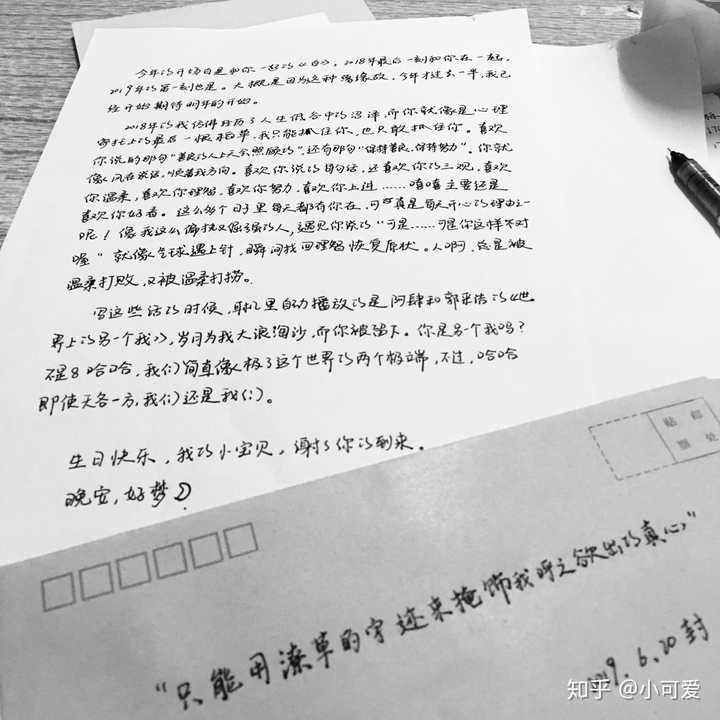 今年的开场白是和你一起的《白》。2018年最后一刻和你在一起,
2019年的第一刻也是。大概是因为这种缘故,今年才过去一半,我已
经开始期待明年的开始。
2018年的我仿佛经历了人生低谷中的沼泽,而你就像是心理
寄托上的最后一根稻草,我只能抓住你,也只敢抓住你。喜欢
你说的那句“善良的人上天会照顾的”,还有那句“保持善良,保持努力”。你就
像风在说话,快给我方向。喜欢你说的每句话,还喜欢你的三观,喜欢
你温柔,喜欢你理智,喜欢你努力,喜欢你上进……嘻嘻主要还是
喜欢你好看。这么多个日子里每天都有你在,可真是每天开心的理由之一
呢!像我这么偏执又倔强的人,遇见你说的“可是……可是你这样不对
喔”就像气球遇上针,瞬间找回理智恢复原状。人啊,总是被
温柔打败,又被温柔打捞。
写这些话的时候,耳机里自动播放的是阿肆和郭采洁的《世
界上的另一个我》,岁月为我大浪淘沙,而你被留下。你是另一个我吗?
不是8哈哈,我们简直像极了这个世界的两个极端,不过,哈哈
即使天各一方,我们还是我们。
生日快乐,我的小宝贝,谢谢你的到来。
晚安,好梦
贴 邮
票 处
“只能用潦草的字迹来掩饰我呼之欲出的真心”
2019.6.20封
知乎 @小可爱